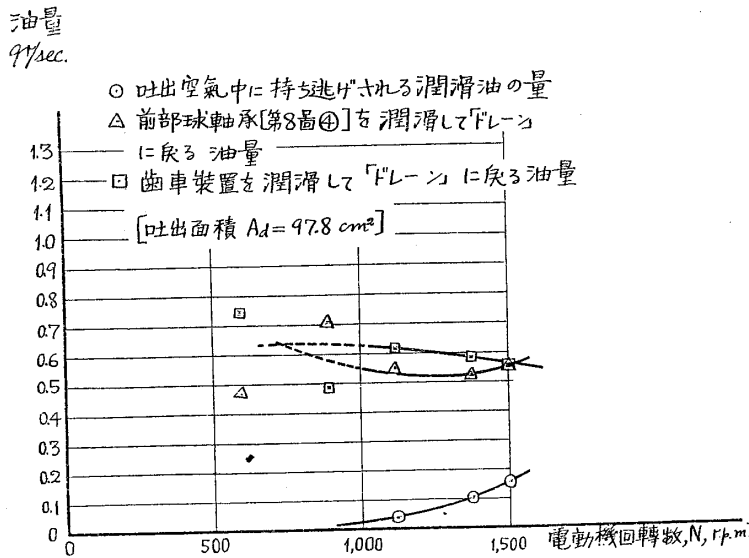 油量
gr/sec.
⊙ 吐出空氣中に持ち逃げされる潤滑油の量
△ 前部球軸承[第8圖④]を潤滑して「ドレーン」
に戻る油量
⊡ 歯車裝置を潤滑して「ドレーン」に戻る油量
[吐出面積 Ad = 97.8 cm²]
1.3
1.2
1.1
1.0
0.9
0.8
0.7
0.6
0.5
0.4
0.3
0.2
0.1
0
0 500 1,000 1,500 電動機回轉数, N, r.p.m